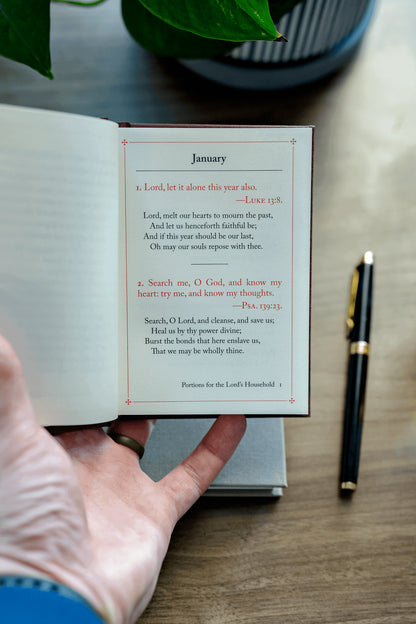 January
1. Lord, let it alone this year also.
—Luke 13:8.
Lord, melt our hearts to mourn the past,
And let us henceforth faithful be;
And if this year should be our last,
Oh may our souls repose with thee.
2. Search me, O God, and know my
heart: try me, and know my thoughts.
—Psa. 139:23.
Search, O Lord, and cleanse, and save us;
Heal us by thy power divine;
Burst the bonds that here enslave us,
That we may be wholly thine.
Portions for the Lord's Household 1